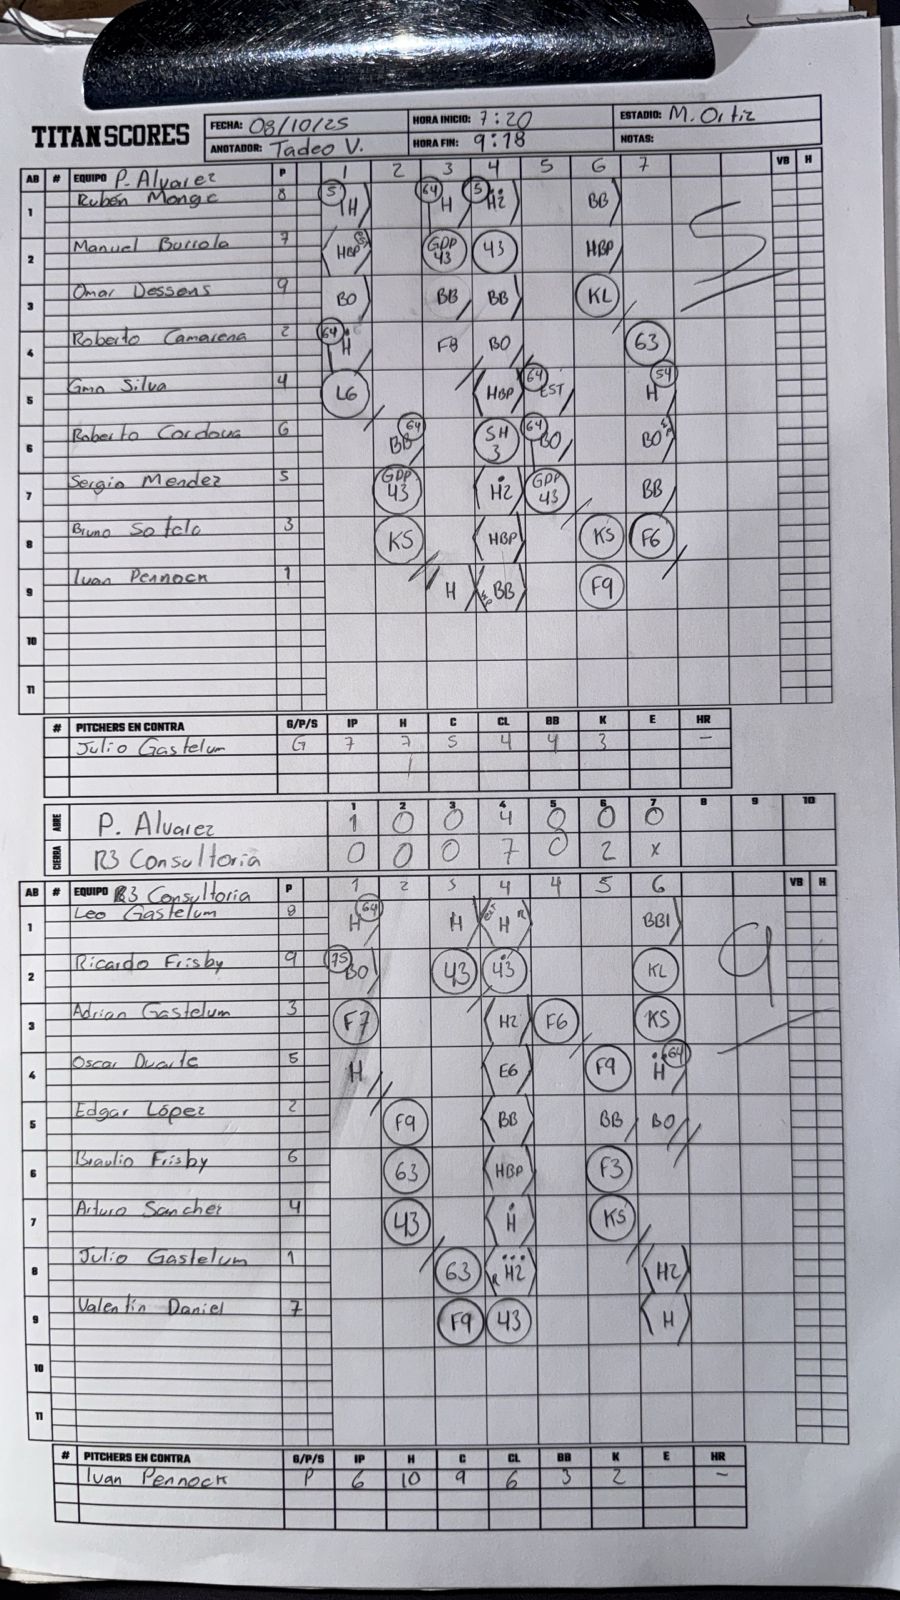 TITAN SCORES
FECHA: 08/10/25 HORA INICIO: 7:20 ESTADIO: M. Ortiz
ANOTADOR: Tadeo V. HORA FIN: 9:18 NOTAS:
AB # EQUIPO P. Alvarez P 1 2 3 4 5 6 7 VB H
1 Rubén Monge 8 5 H 64 H 5 H2 BB
2 Manuel Burrola 7 HBP GDP 43 43 HBP
3 Omar Dessens 9 BO BB BB KL
4 Roberto Camarena 2 64 H F8 BO 63
5 Gmo Silva 4 L6 HBP 64 EST H 54
6 Roberto Cordova 6 BB 64 SH 3 64 BO BO WP
7 Sergio Mendez 5 GDP 43 H2 GDP 43 BB
8 Bruno Sotelo 3 KS HBP KS F6
9 Ivan Pennock 1 H WP BB F9
10
11
5
# PITCHERS EN CONTRA G/P/S IP H C CL BB K E HR
Julio Gastelum G 7 7 5 4 4 3 –
1 2 3 4 5 6 7 8 9 10
ABRE P. Alvarez 1 0 0 4 0 0 0
CIERRA R3 Consultoria 0 0 0 7 0 2 x
AB # EQUIPO R3 Consultoria P 1 2 3 4 4 5 6 VB H
1 Leo Gastelum 8 H 64 H H R BB1
2 Ricardo Frisby 9 75 BO 43 43 KL
3 Adrian Gastelum 3 F7 H2 F6 KS
4 Oscar Duarte 5 H E6 F9 H 64
5 Edgar López 2 F9 BB BB BO
6 Braulio Frisby 6 63 HBP F3
7 Arturo Sanchez 4 43 H KS
8 Julio Gastelum 1 63 R H2 H2
9 Valentin Daniel 7 F9 43 H
10
11
9
# PITCHERS EN CONTRA G/P/S IP H C CL BB K E HR
Ivan Pennock P 6 10 9 6 3 2 –